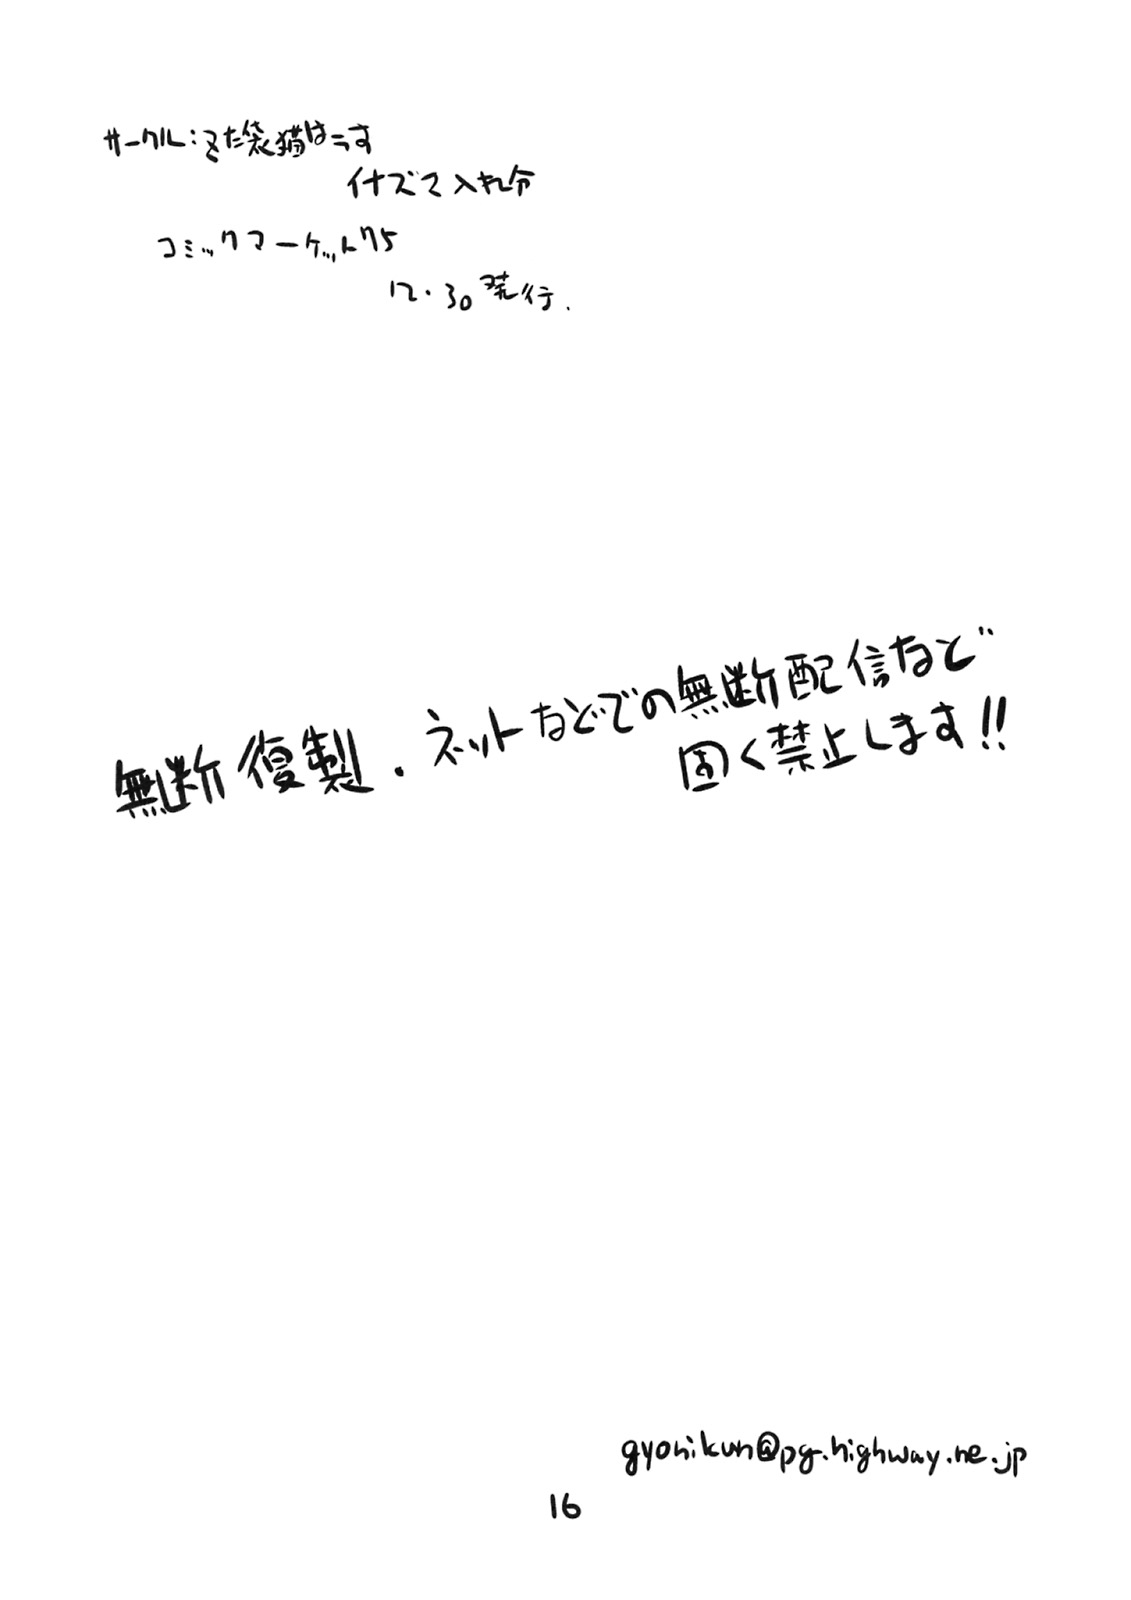 サークル:きた袋猫はうす
イナズマ入れ分
コミックマーケット75
12.30発行.
無断復製.ネットなどでの無断配信など
固く禁止します!!
gyonikun@pg.highway.ne.jp
16